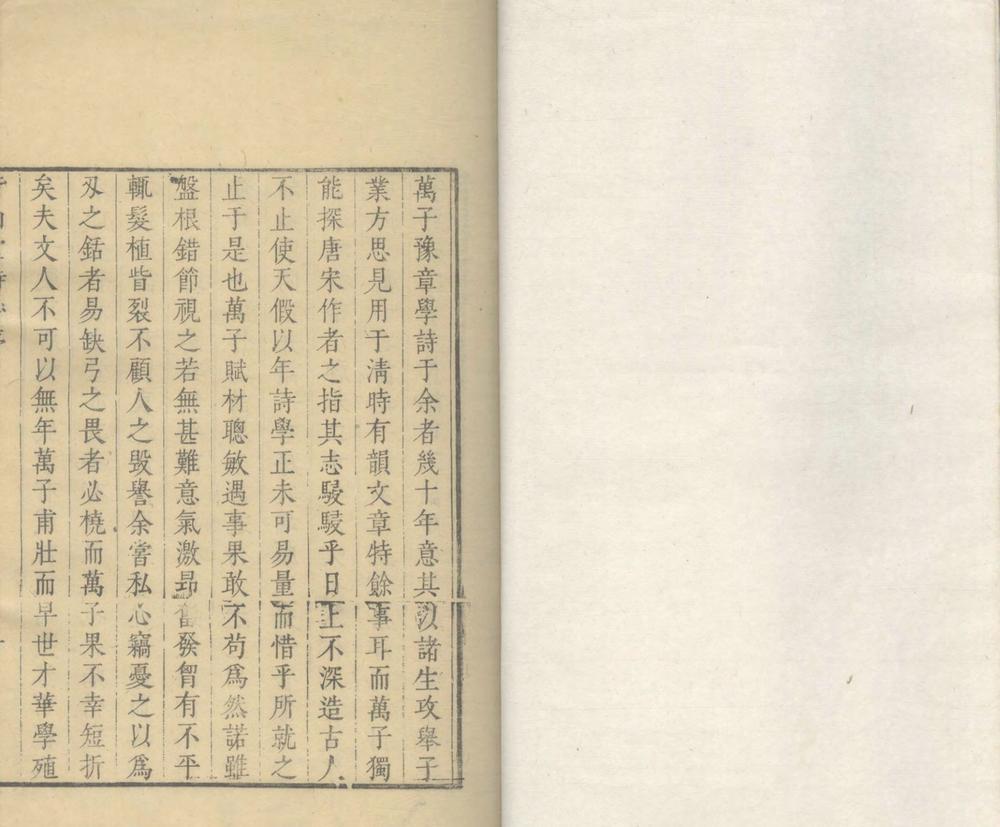 萬子豫章學詩于余者幾十年意其以諸生攻舉子
業方思見用于淸時有韻文章特餘事耳而萬子獨
能探唐宋作者之指其志駸駸乎日上不深造古人
不止使天假以年詩學正未可易量而惜乎所就之
止于是也萬子賦材聰敏遇事果敢不苟爲然諾雖
盤根錯節視之若無甚難意氣激昻奮發胷有不平
輒髮植眥裂不顧人之毁譽余嘗私心竊憂之以爲
刄之銛者易缺弓之畏者必橈而萬子果不幸短折
矣夫文人不可以無年萬子甫壯而早世才華學殖